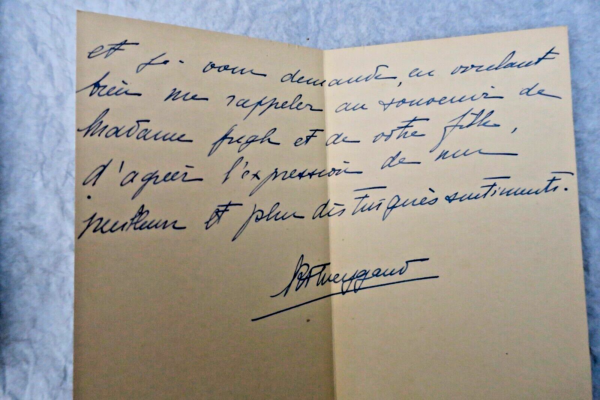 et je vous demande, en voulant
bien me rappeler au souvenir de
Madame et de votre fille,
d'agréer l'expression de mes
meilleurs et plus distingués sentiments.
Weygand